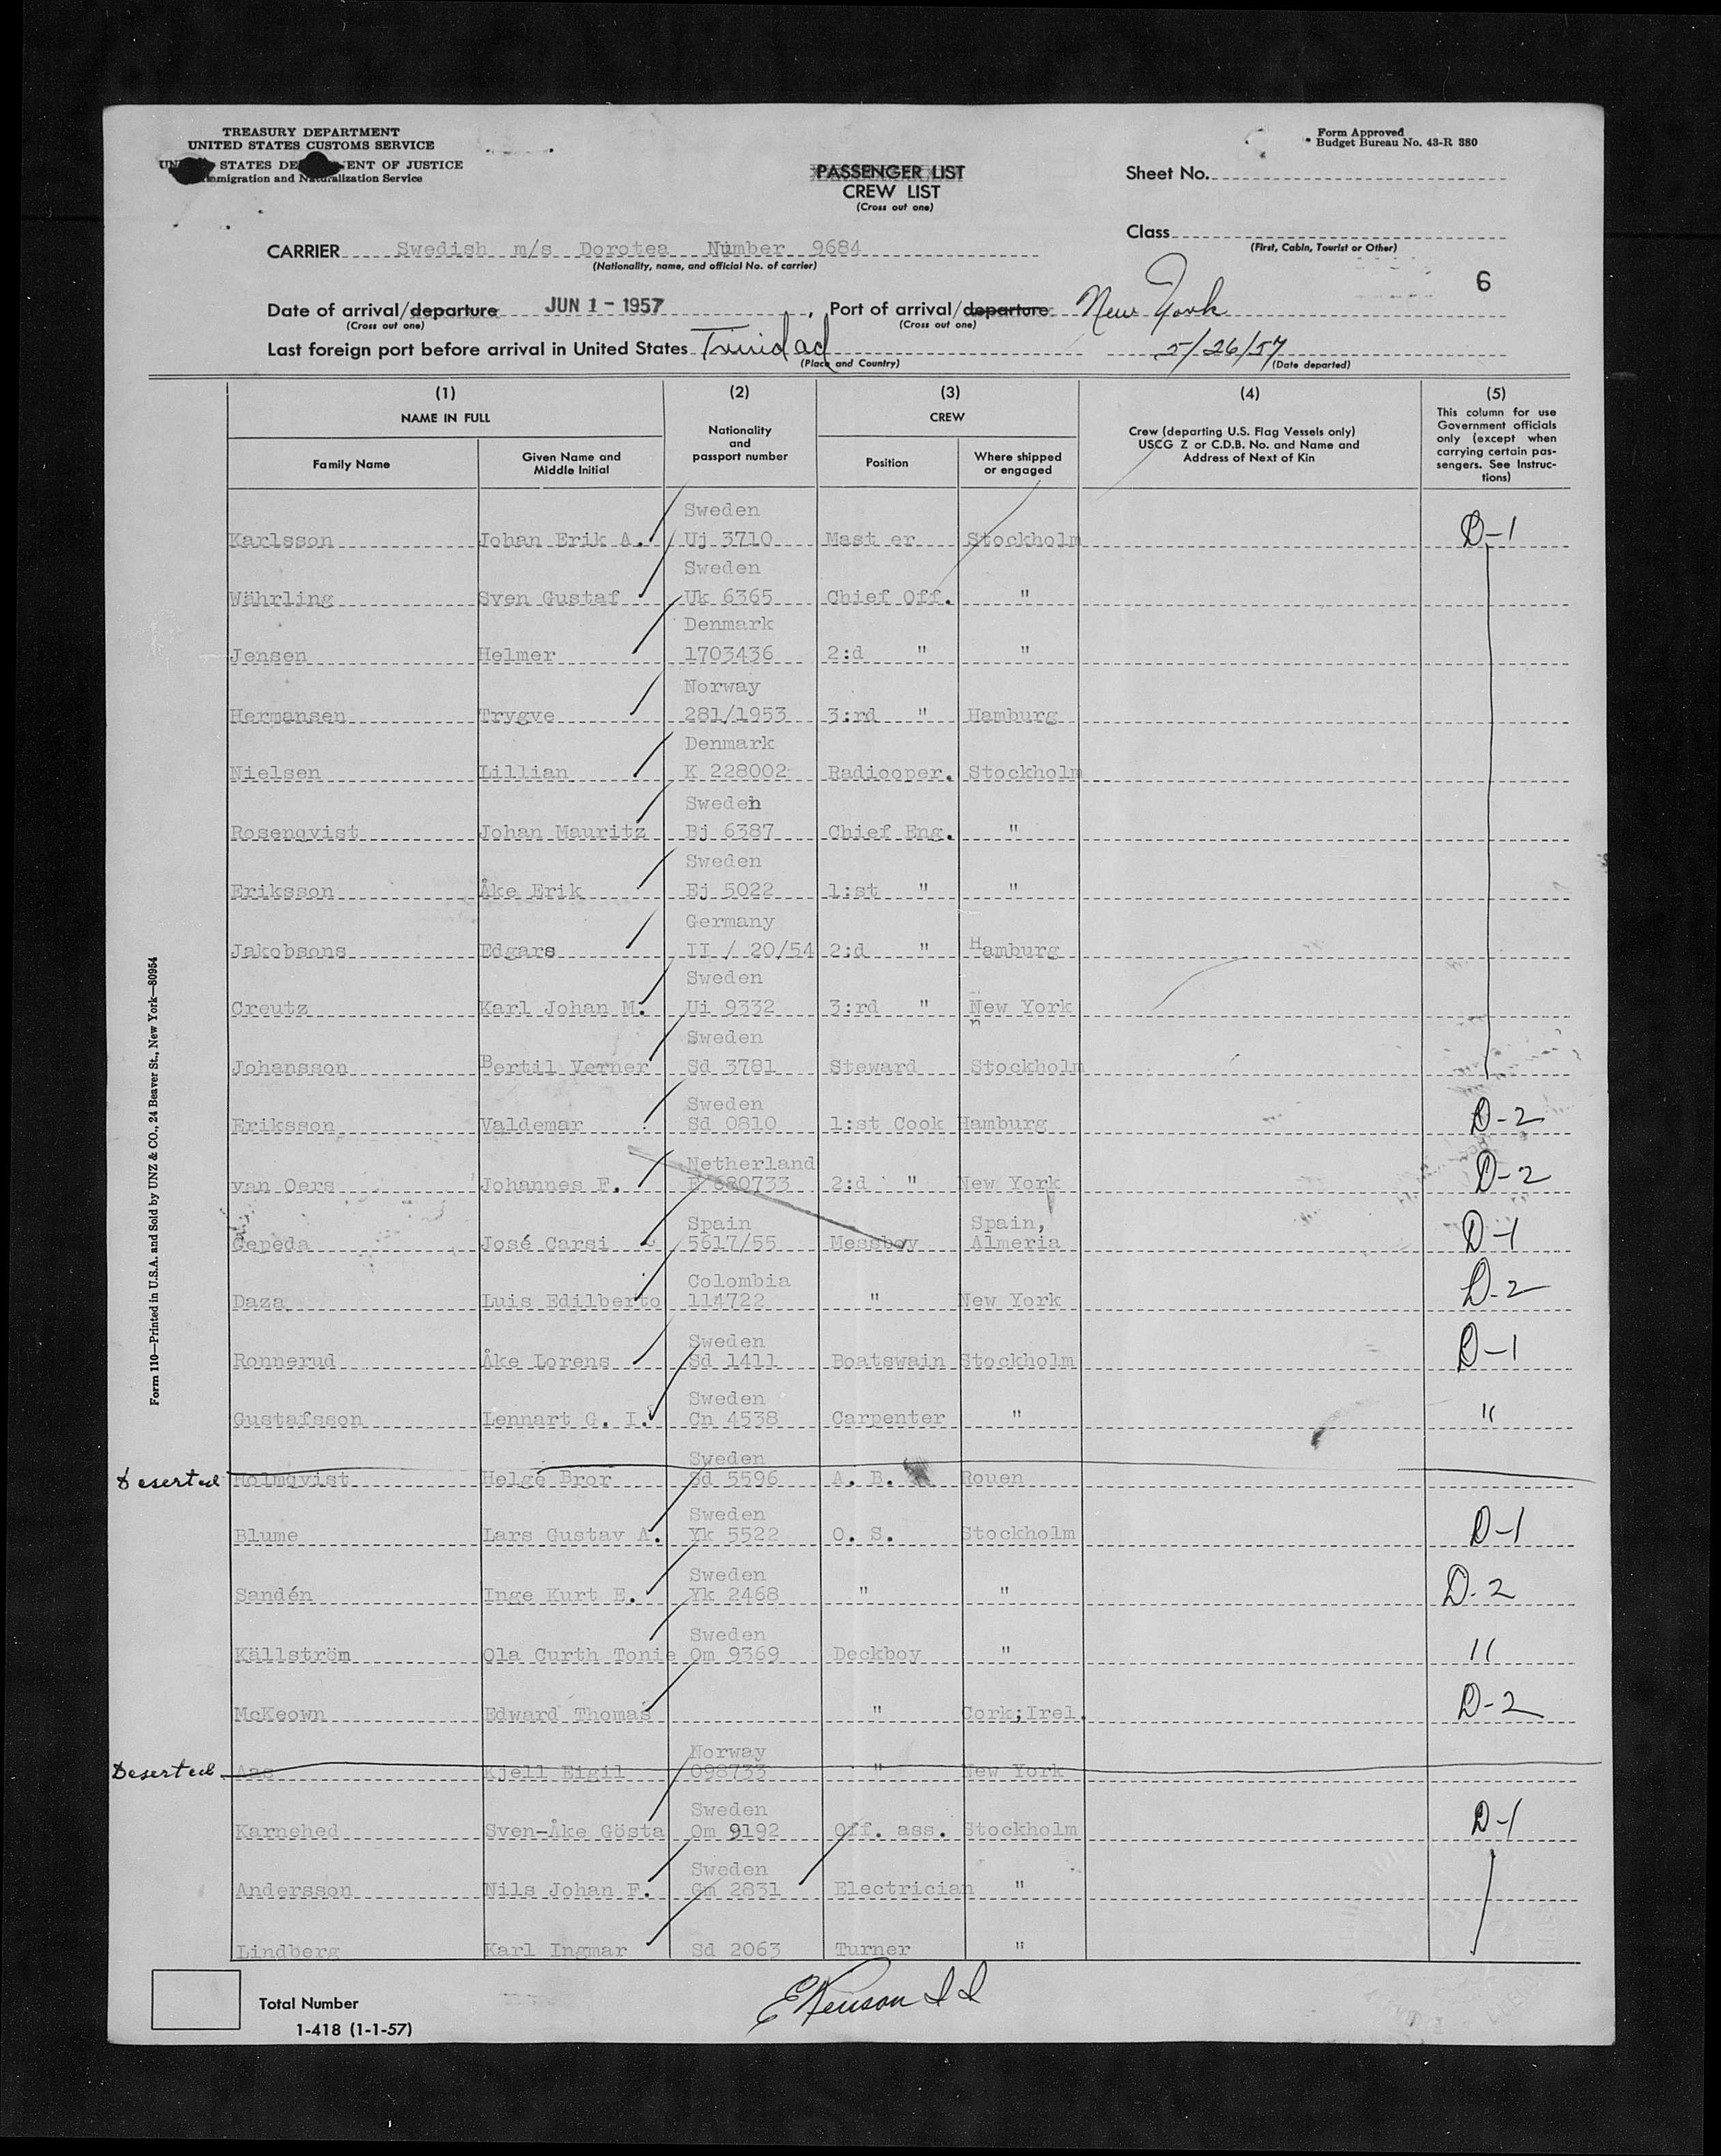 TREASURY DEPARTMENT
UNITED STATES CUSTOMS SERVICE
STATES DE ENT OF JUSTICE
migration and Naturalization Service
Form Approved
Budget Bureau No. 43-R 380
PASSENGER LIST
CREW LIST
(Cross out one)
Sheet No.
Class
(First, Cabin, Tourist or Other)
CARRIER Swedish m/s Dorotea Number 9684
(Nationality, name, and official No. of carrier)
6
Date of arrival/departure JUN 1 - 1957, Port of arrival/departure New York
(Cross out one) (Cross out one)
Last foreign port before arrival in United States Trinidad 5/26/57
(Place and Country) (Date departed)
(1) (2) (3) (4) (5)
NAME IN FULL
Family Name
Given Name and Middle Initial
Nationality and passport number
CREW
Position
Where shipped or engaged
Crew (departing U.S. Flag Vessels only)
USCG Z or C.D.B. No. and Name and
Address of Next of Kin
This column for use
Government officials
only (except when
carrying certain pas-
sengers. See Instruc-
tions)
Sweden
Karlsson Johan Erik A. Uj 3710 Mast er Stockholm D-1
Sweden
Währling Sven Gustaf Uk 6365 Chief Off. "
Denmark
Jensen Helmer 1703436 2:d " "
Norway
Hermansen Trygve 281/1953 3:rd " Hamburg
Denmark
Nielsen Lillian K 228002 Radiooper. Stockholm
Sweden
Rosenqvist Johan Mauritz Bj 6387 Chief Eng. "
Sweden
Eriksson Åke Erik Ej 5022 1:st " "
Germany
Jakobsons Edgars II / 20/54 2:d " Hamburg
Sweden
Creutz Karl Johan M. Ui 9332 3:rd " New York
Sweden
Johansson Bertil Verner Sd 3781 Steward Stockholm
Sweden
Eriksson Valdemar Sd 0810 1:st Cook Hamburg D-2
Netherland
van Oers Johannes F. E 680733 2:d " New York D-2
Spain Spain,
Cepeda José Carsi 5617/55 Messboy Almeria D-1
Colombia
Daza Luis Edilberto 114722 " New York D-2
Sweden
Ronnerud Åke Lorens Sd 1411 Boatswain Stockholm D-1
Sweden
Gustafsson Lennart G. I. Cn 4538 Carpenter " "
Sweden
Deserted Holmqvist Helge Bror Sd 5596 A. B. Rouen
Sweden
Blume Lars Gustav A. Yk 5522 O. S. Stockholm D-1
Sweden
Sandén Inge Kurt E. Yk 2468 " " D-2
Sweden
Källström Ola Curth Tonie Om 9369 Deckboy " "
McKeown Edward Thomas " Cork;Irel. D-2
Norway
Deserted Aas Kjell Eigil 098733 " New York
Sweden
Karnehed Sven-Åke Gösta Om 9192 Off. ass. Stockholm D-1
Sweden
Andersson Nils Johan F. Gm 2831 Electrician "
Lindberg Karl Ingmar Sd 2063 Turner "
Total Number
1-418 (1-1-57)
Form 110—Printed in U.S.A. and Sold by UNZ & CO., 24 Beaver St., New York—80954